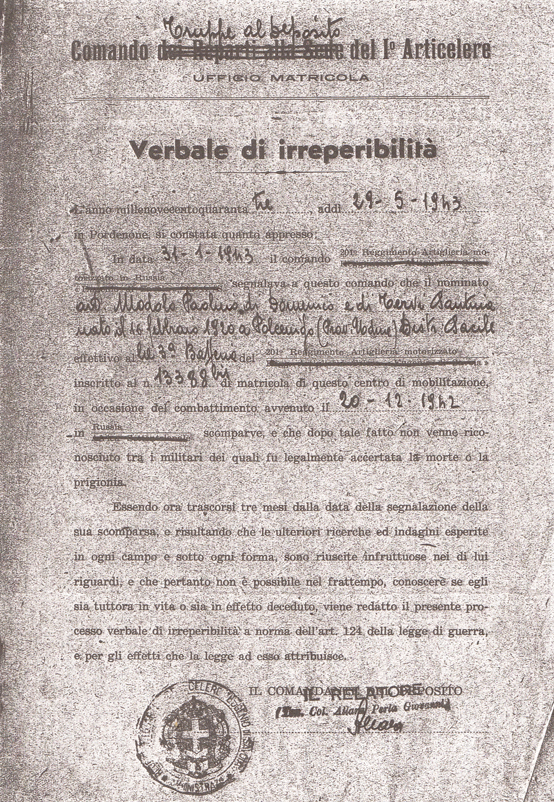 Truppe al Deposito
Comando dei Reparti alla Sede del Iº Articelere
UFFICIO MATRICOLA
Verbale di irreperibilità
L'anno millenovecentoquaranta tre, addì 29-5-1943
in Pordenone, si constata quanto appresso:
In data 31-1-1943 il comando 201º Reggimento Artiglieria mo-
torizzato in Russia segnalava a questo comando che il nominato
Modolo Paolino di Domenico e di
nato il 16 febbraio 1920 a Polcenigo (Prov. Udine) Distr. Sacile
effettivo al 3ª Batteria del 201º Reggimento Artiglieria motorizzato
inscritto al n. 13388 di matricola di questo centro di mobilitazione,
in occasione del combattimento avvenuto il 20-12-1942
in Russia scomparve, e che dopo tale fatto non venne rico-
nosciuto tra i militari dei quali fu legalmente accertata la morte o la
prigionia.
Essendo ora trascorsi tre mesi dalla data della segnalazione della
sua scomparsa, e risultando che le ulteriori ricerche ed indagini esperite
in ogni campo e sotto ogni forma, sono riuscite infruttuose nei di lui
riguardi, e che pertanto non è possibile nel frattempo, conoscere se egli
sia tuttora in vita o sia in effetto deceduto, viene redatto il presente pro-
cesso verbale di irreperibilità a norma dell'art. 124 della legge di guerra,
e per gli effetti che la legge ad esso attribuisce.
IL COMANDANTE DEL DEPOSITO
IL RELATORE
(Ten. Col. Giovanni)